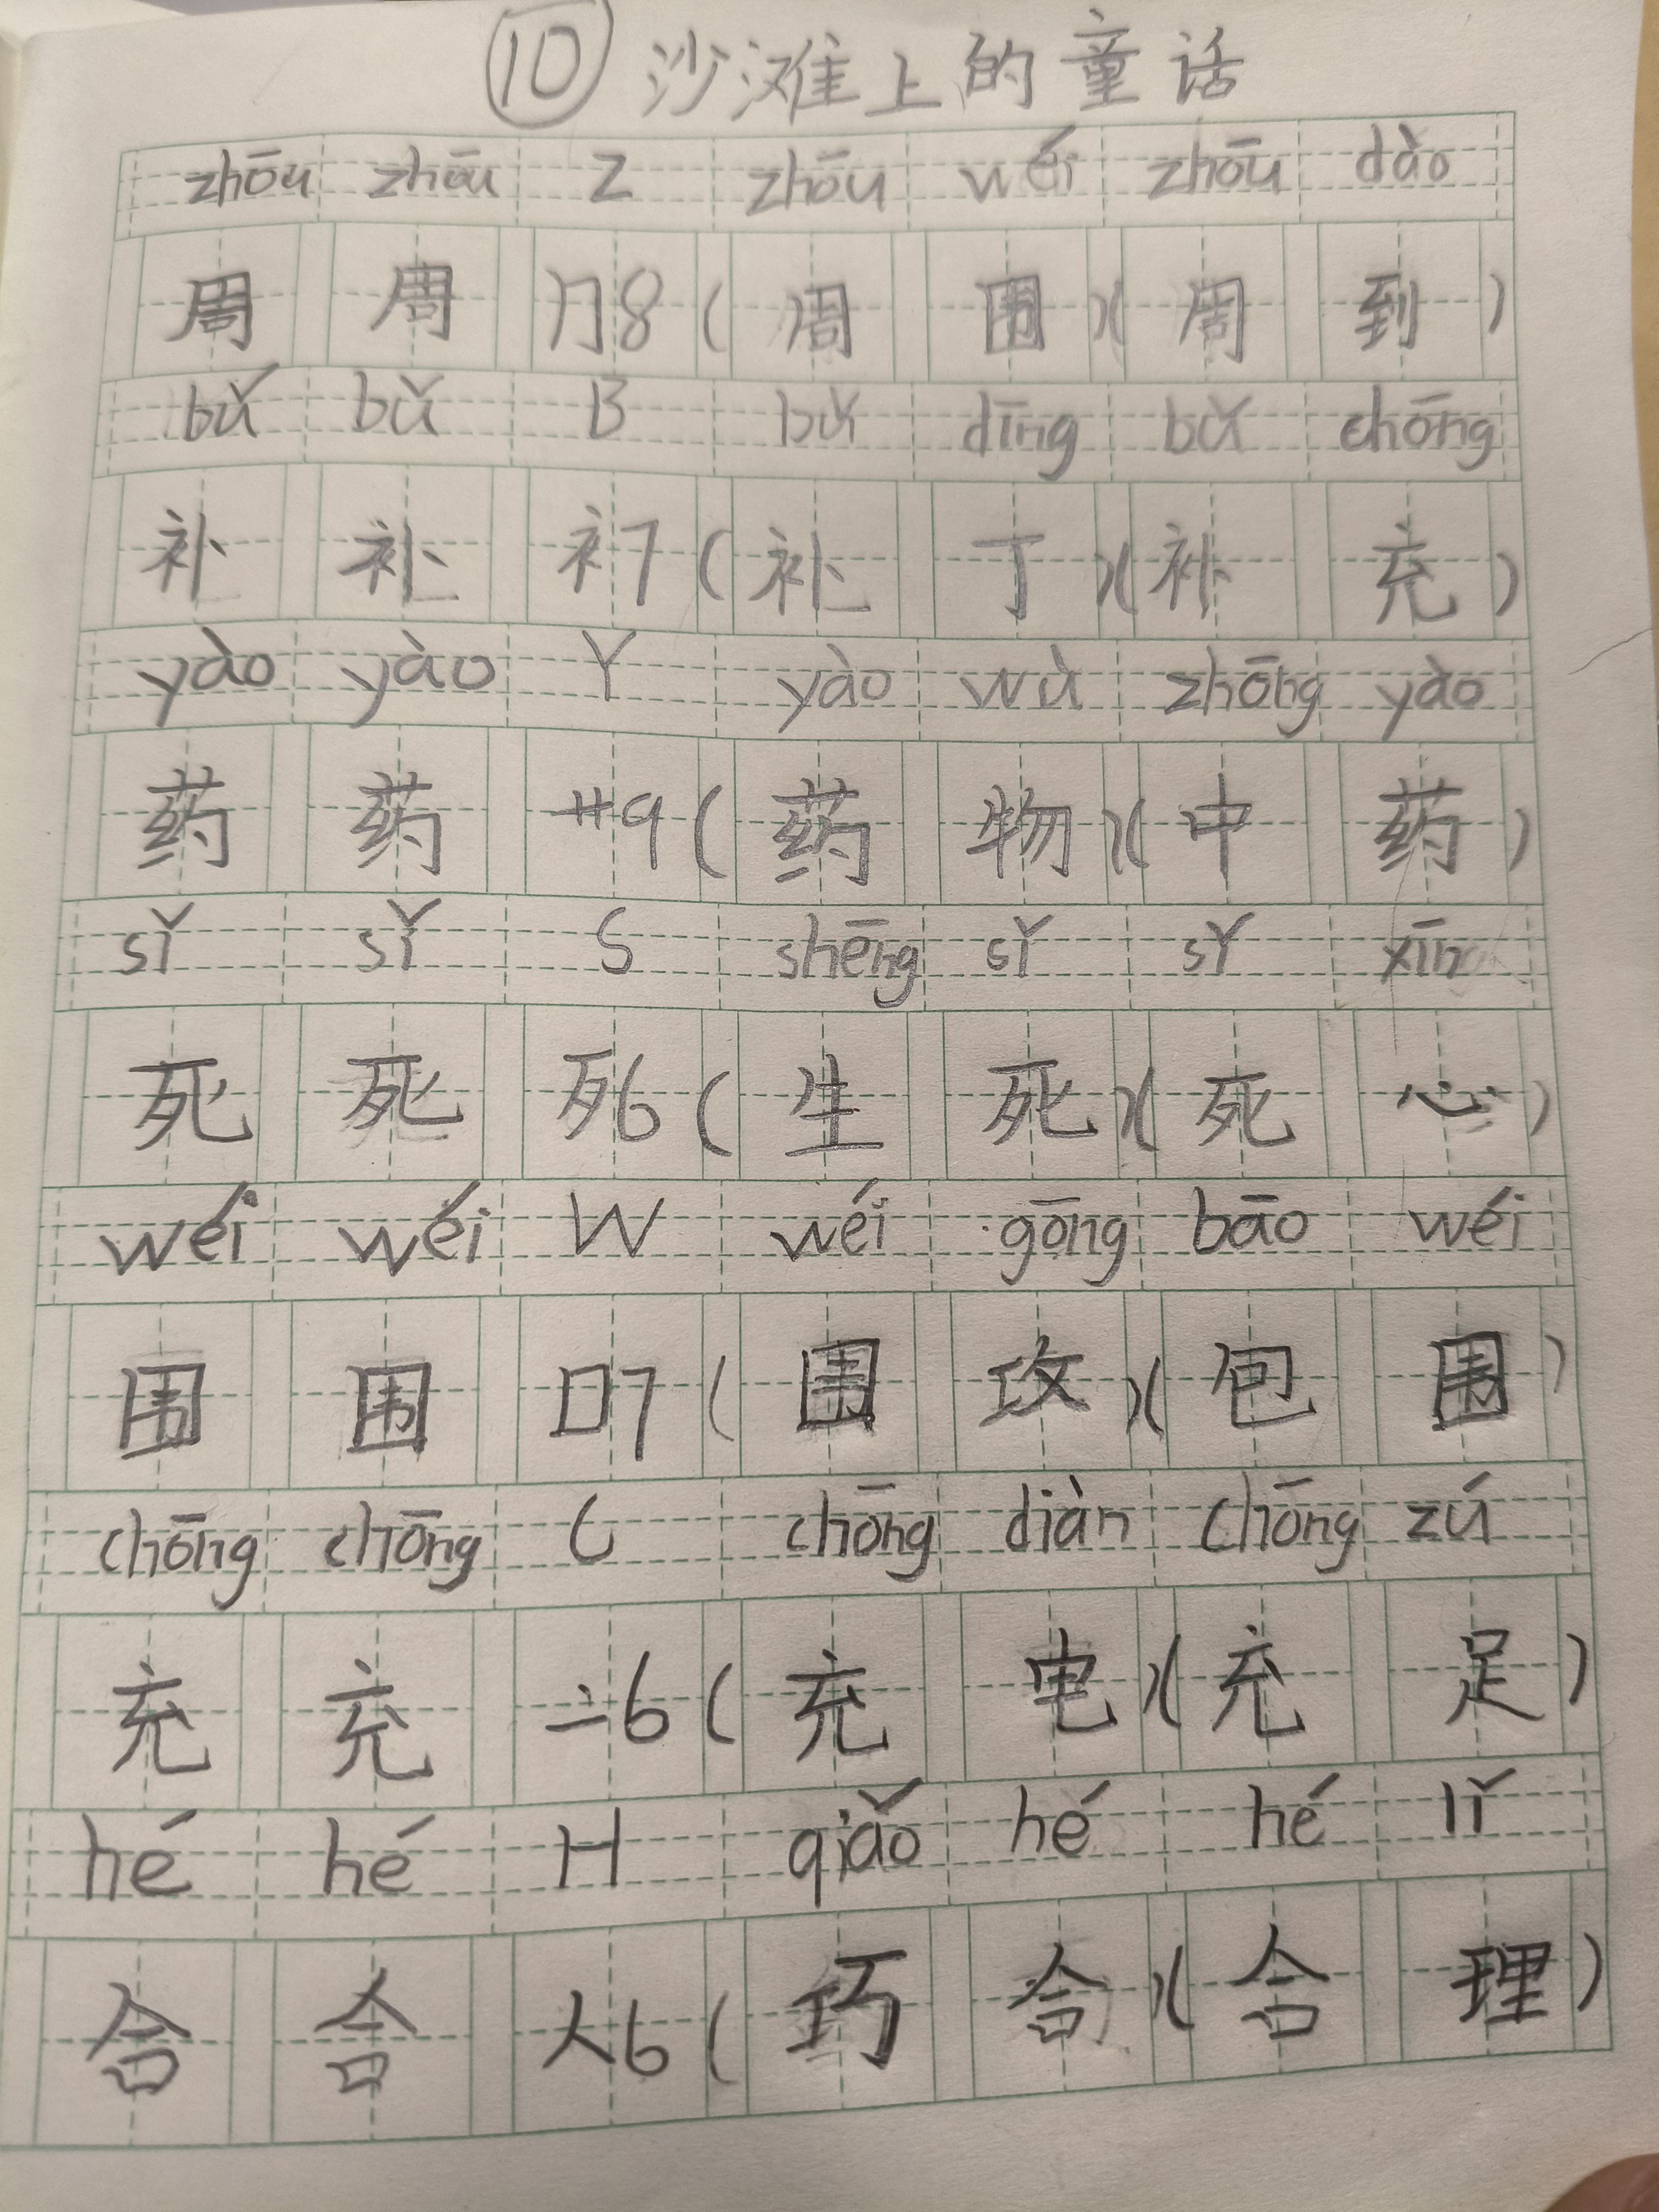 ⑩ 沙滩上的童话
zhōu zhōu Z zhōu wéi zhōu dào
周 周 冂8(周围)(周到)
bǔ bǔ B bǔ dīng bǔ chōng
补 补 衤7(补丁)(补充)
yào yào Y yào wù zhōng yào
药 药 艹9(药物)(中药)
sǐ sǐ S shēng sǐ sǐ xīn
死 死 歹6(生死)(死心)
wéi wéi W wéi gōng bāo wéi
围 围 囗7(围攻)(包围)
chōng chōng C chōng diàn chōng zú
充 充 亠6(充电)(充足)
hé hé H qiǎo hé hé lǐ
合 合 人6(巧合)(合理)